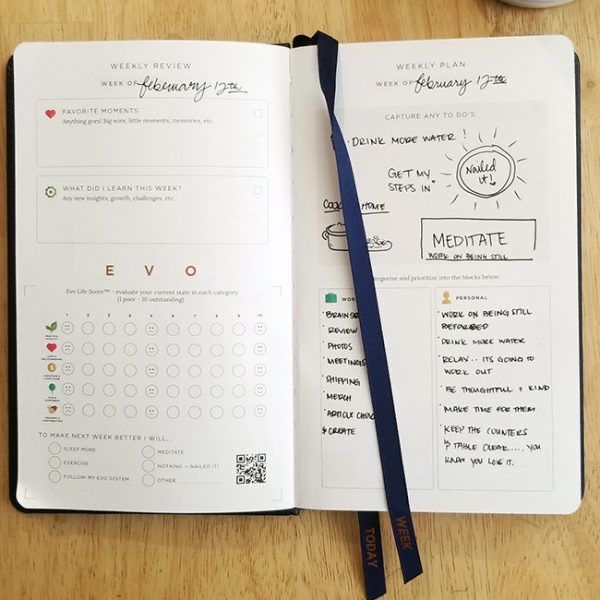 WEEKLY REVIEW
WEEK OF february 12th
FAVORITE MOMENTS
Anything goes! Big wins, little moments, memories, etc.
WHAT DID I LEARN THIS WEEK?
Any new insights, growth, challenges, etc.
EVO
Evo Life Score™ - evaluate your current state in each category
(1 poor - 10 outstanding)
1 2 3 4 5 6 7 8 9 10
TO MAKE NEXT WEEK BETTER I WILL...
SLEEP MORE
EXERCISE
FOLLOW MY EVO SYSTEM
MEDITATE
NOTHING — NAILED IT!
OTHER
WEEKLY PLAN
WEEK OF february 12th
CAPTURE ANY TO DO'S
· DRINK MORE WATER !
GET MY
STEPS IN
Nailed
it!
HOME
MEDITATE
WORK ON BEING STILL
and prioritize into the blocks below
WOR
· REVIEW
· PHOTOS
· MEETINGS
· SHIPPING
· MERCH
· ARTICLE
& CREATE
PERSONAL
· WORK ON BEING STILL
· DRINK MORE WATER
· RELAX... ITS GOING TO
WORK OUT
· BE THOUGHTFUL + KIND
· MAKE TIME FOR THEM
· KEEP THE COUNTERS
TABLE CLEAR.... YOU
KNOW YOU LOVE IT.
TODAY
WEEK